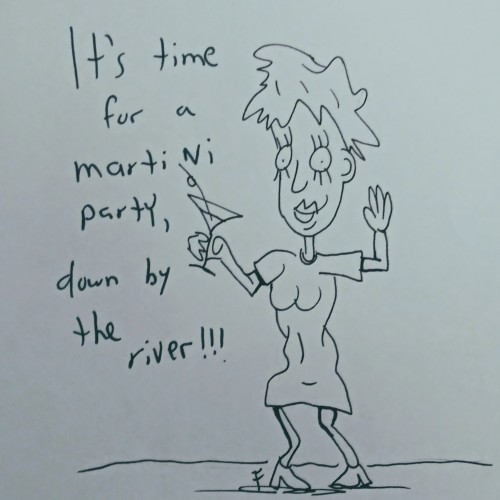 It's time
for a
martiNi
party,
down by
the
river!!!
F